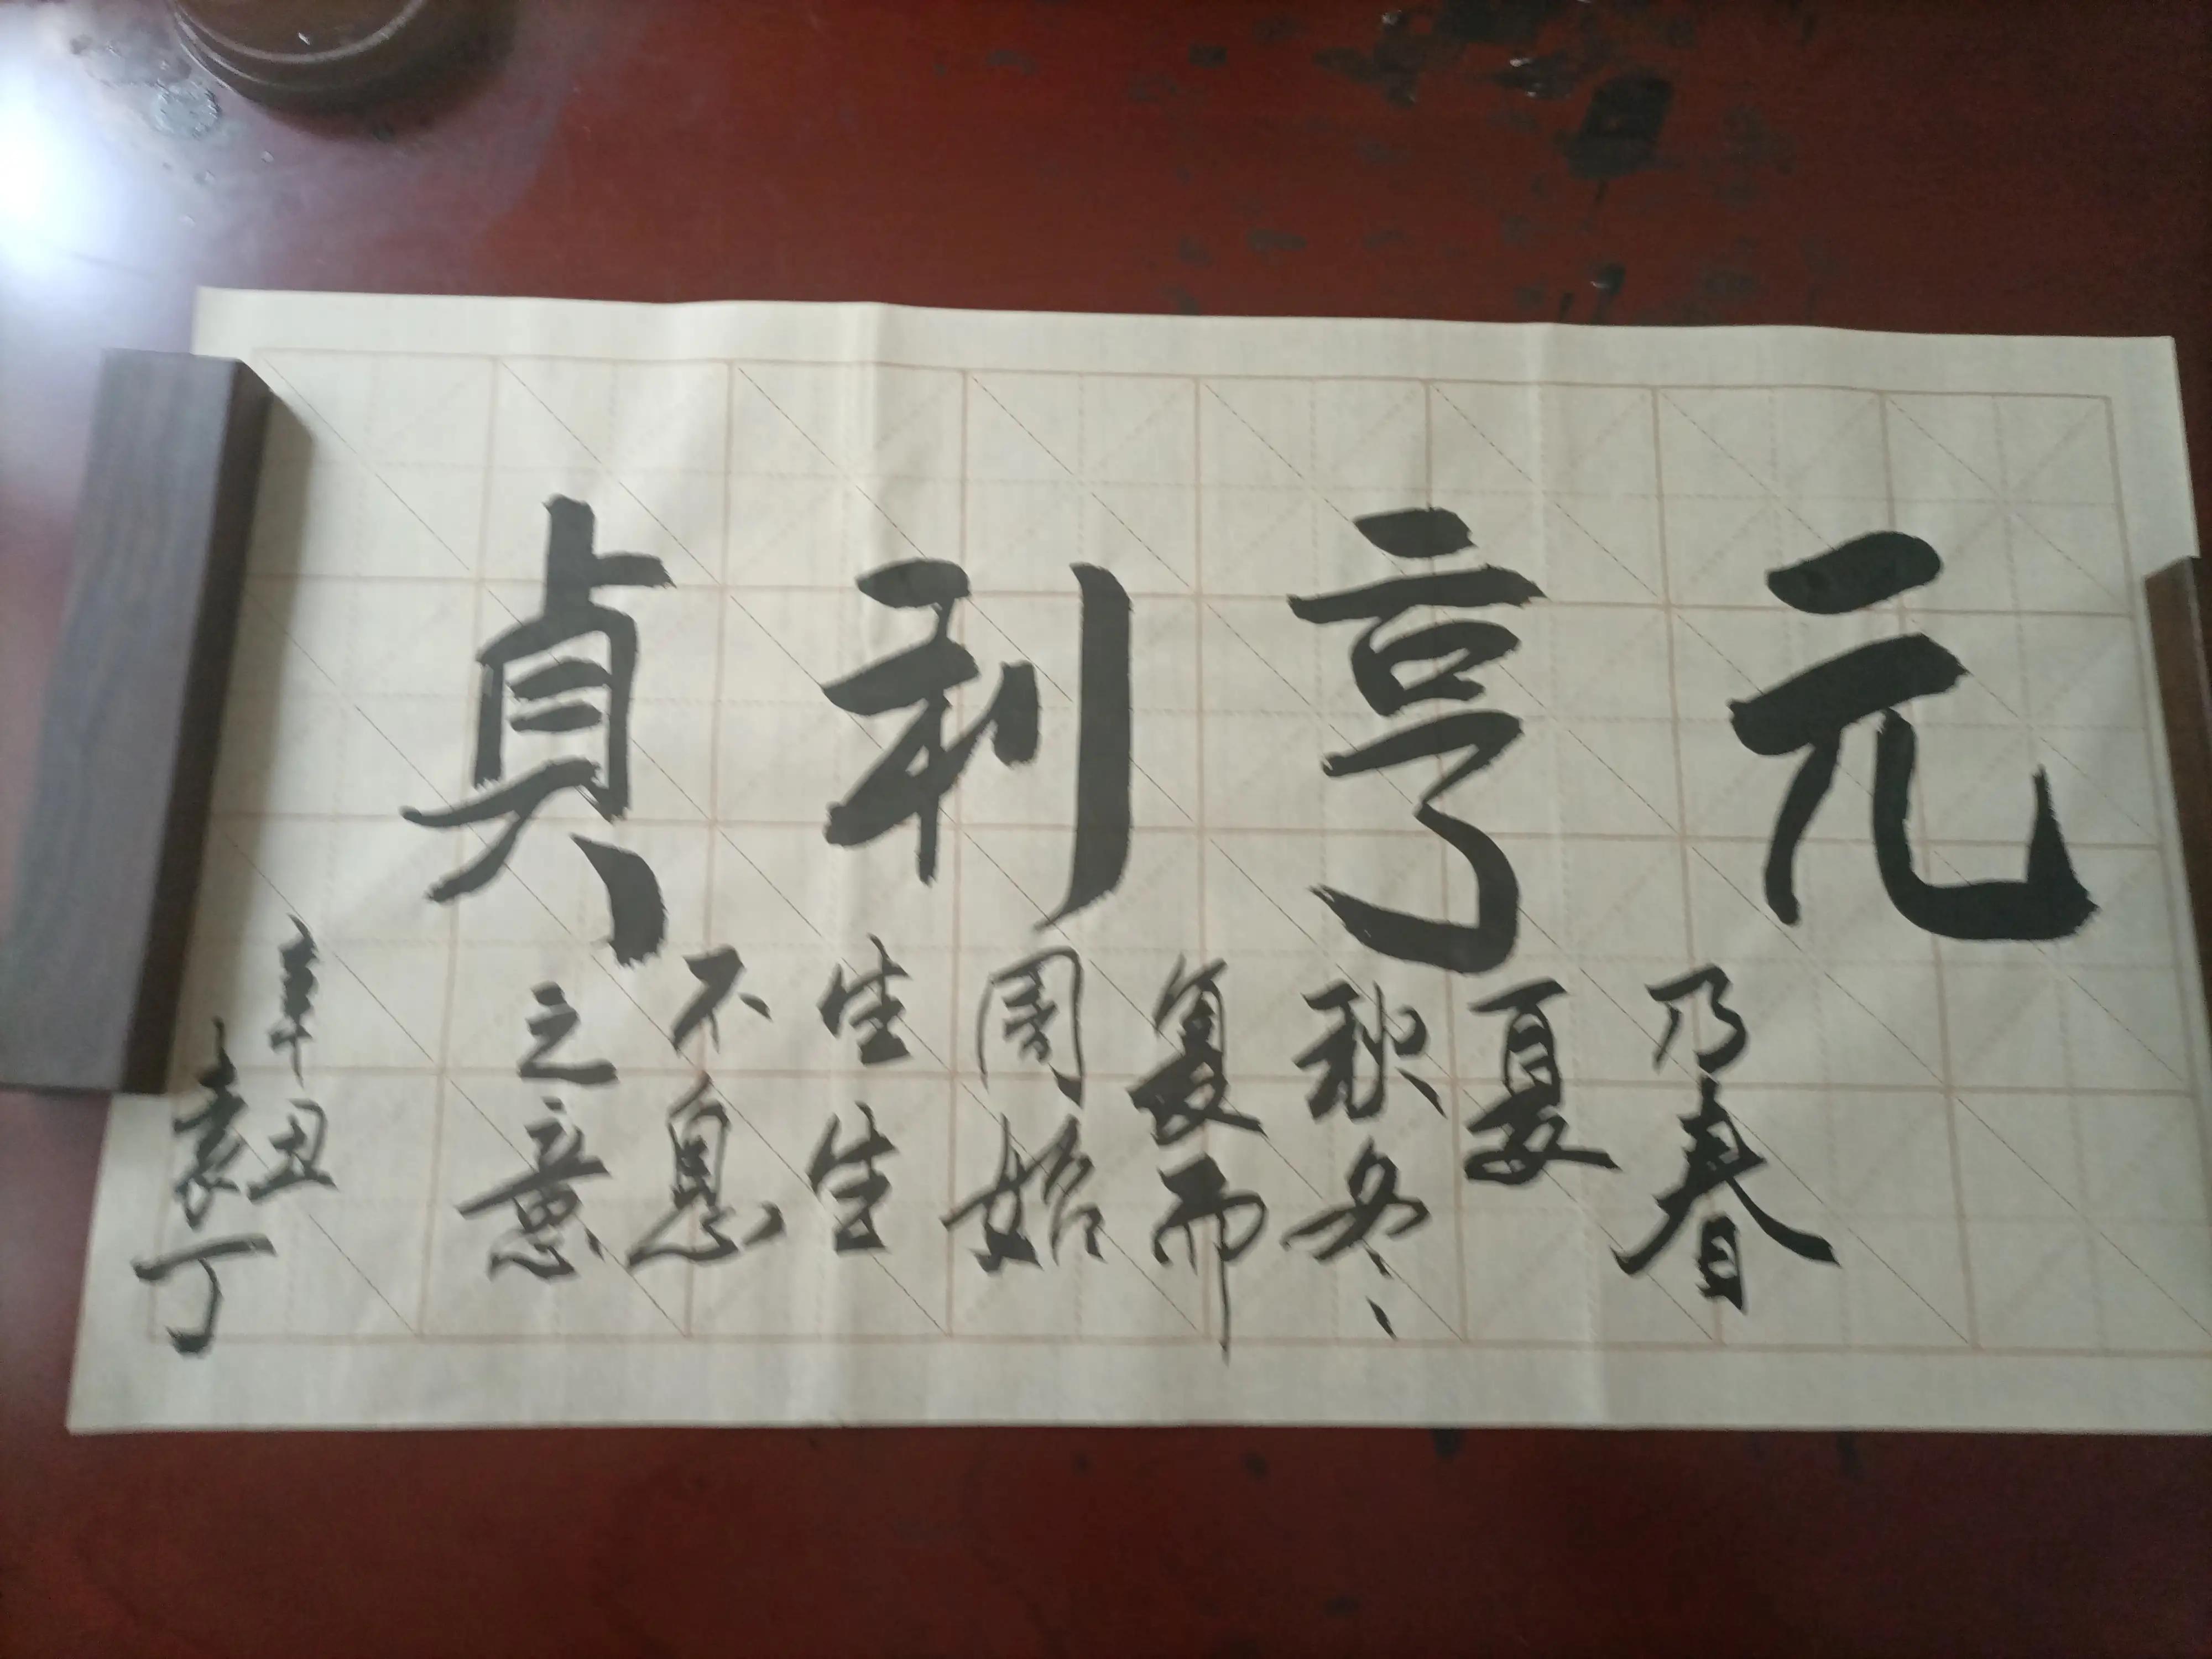 元亨利貞
乃春
夏
秋冬
复而
周始
生生
不息
之意
辛丑
袁丁